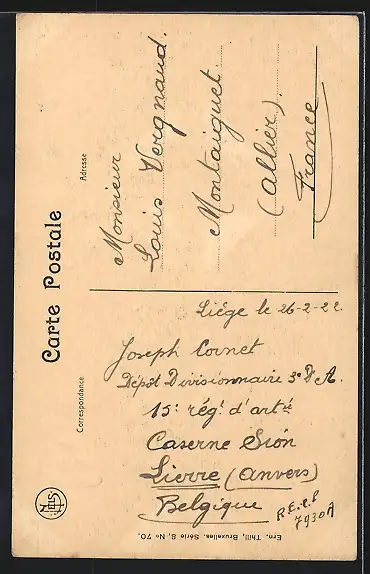 Carte Postale
Correspondance
Adresse
Monsieur
Louis Vergnaud.
Montaiguet
(Allier).
France
Liége le 26-2-22.
Joseph Cornet
Dépôt Divisionnaire 3e D A.
15e régt d'artie
Caserne Sion
Lierre (Anvers)
Belgique
7930A
Ern. Thill, Bruxelles, Série 8, No 70.
NELS